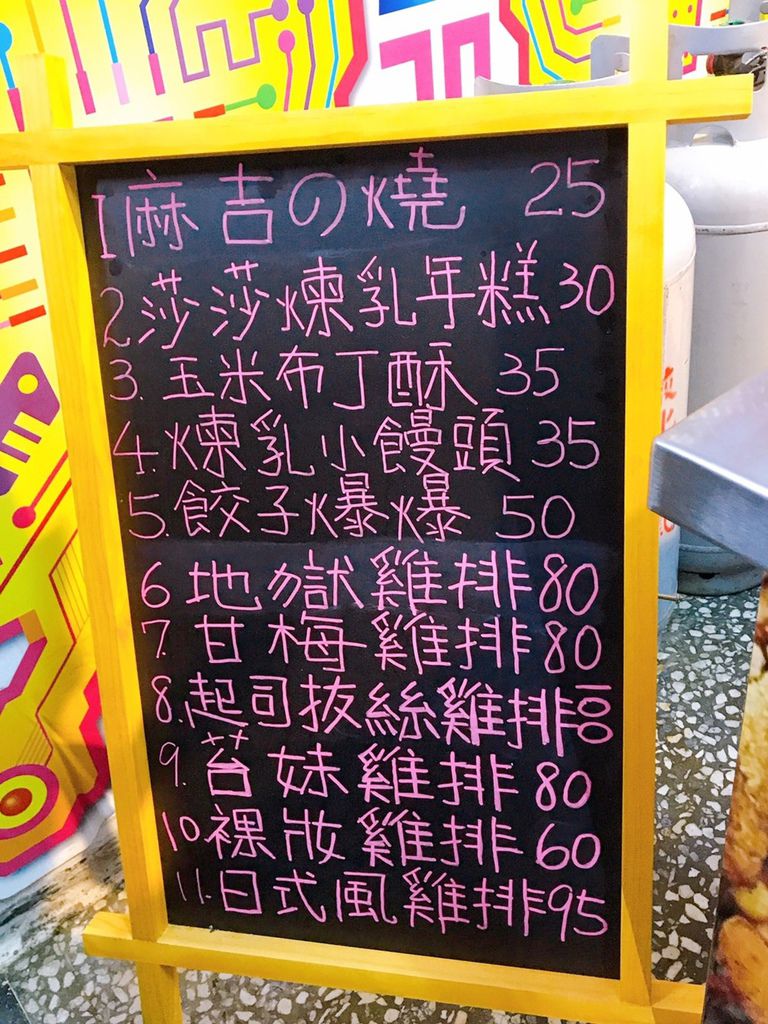 1 麻吉の燒 25
2. 莎莎煉乳年糕 30
3. 玉米布丁酥 35
4. 煉乳小饅頭 35
5. 餃子爆爆 50
6 地獄雞排 80
7. 甘梅雞排 80
8. 起司拔絲雞排 100
9. 苔妹雞排 80
10 裸妝雞排 60
11. 日式風雞排 95